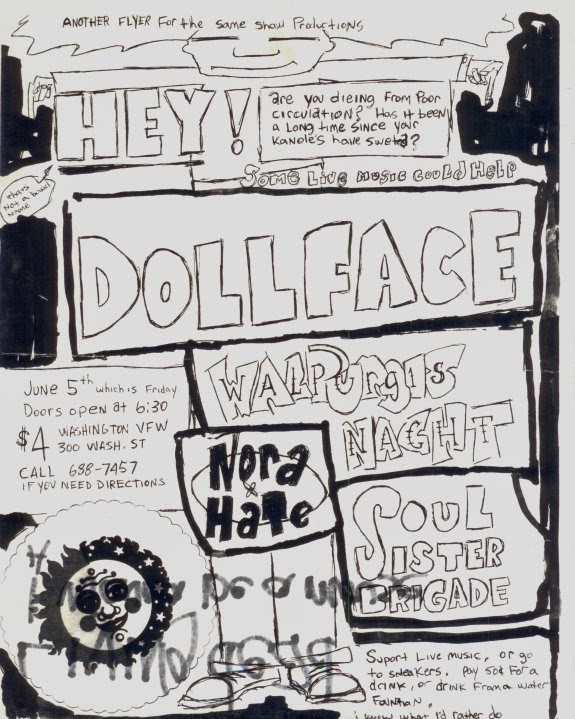 ANOTHER FLYER For the same show Productions
HEY!
are you dieing From Poor
circulation? Has it been
a Long time since your
Kanole's have sweta?
Some Live music could Help
thats
not a band
name
DOLLFACE
WALPurgis
NACHT
June 5th which is Friday
Doors open at 6:30
$4 WASHINGTON VFW
300 WASH. ST
CALL 688-7457
IF YOU NEED DIRECTIONS
Nora
Hate
SOUL
SISTER
BRIGADE
Suport Live music, or go
to sneakers. Pay 50¢ For a
drink, or drink From a water
Fountan.
i know what I'd rather do